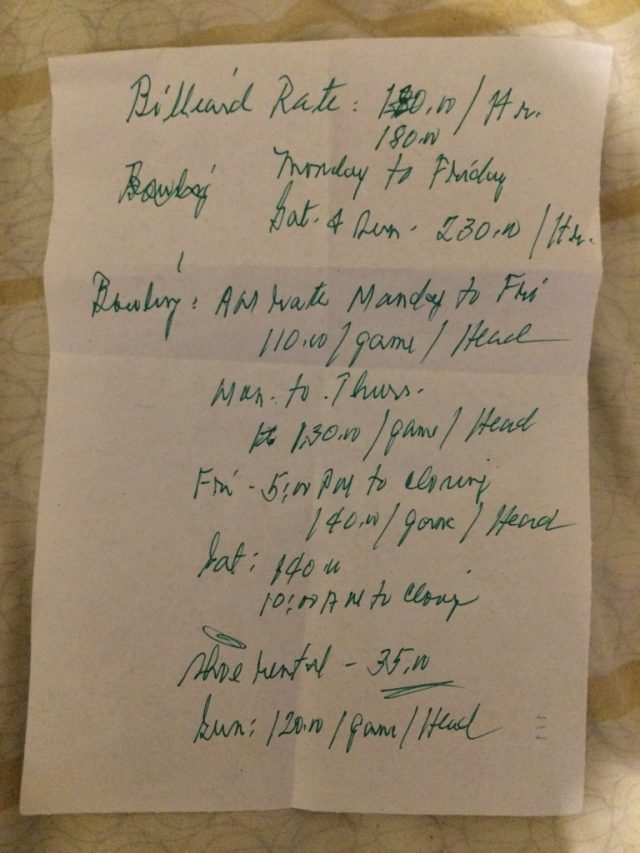 Billiard Rate: 180.00/Hr.
180.00
Monday to Friday
Sat. & Sun. 230.00/Hr.
Bowling: AM rate Monday to Fri
110.00/game/Head
Mon. to Thurs.
130.00/game/Head
Fri - 5:00 PM to closing
140.00/game/Head
Sat: 140.00
10:00 AM to closing
Shoe rental - 35.00
Sun: 120.00/game/Head